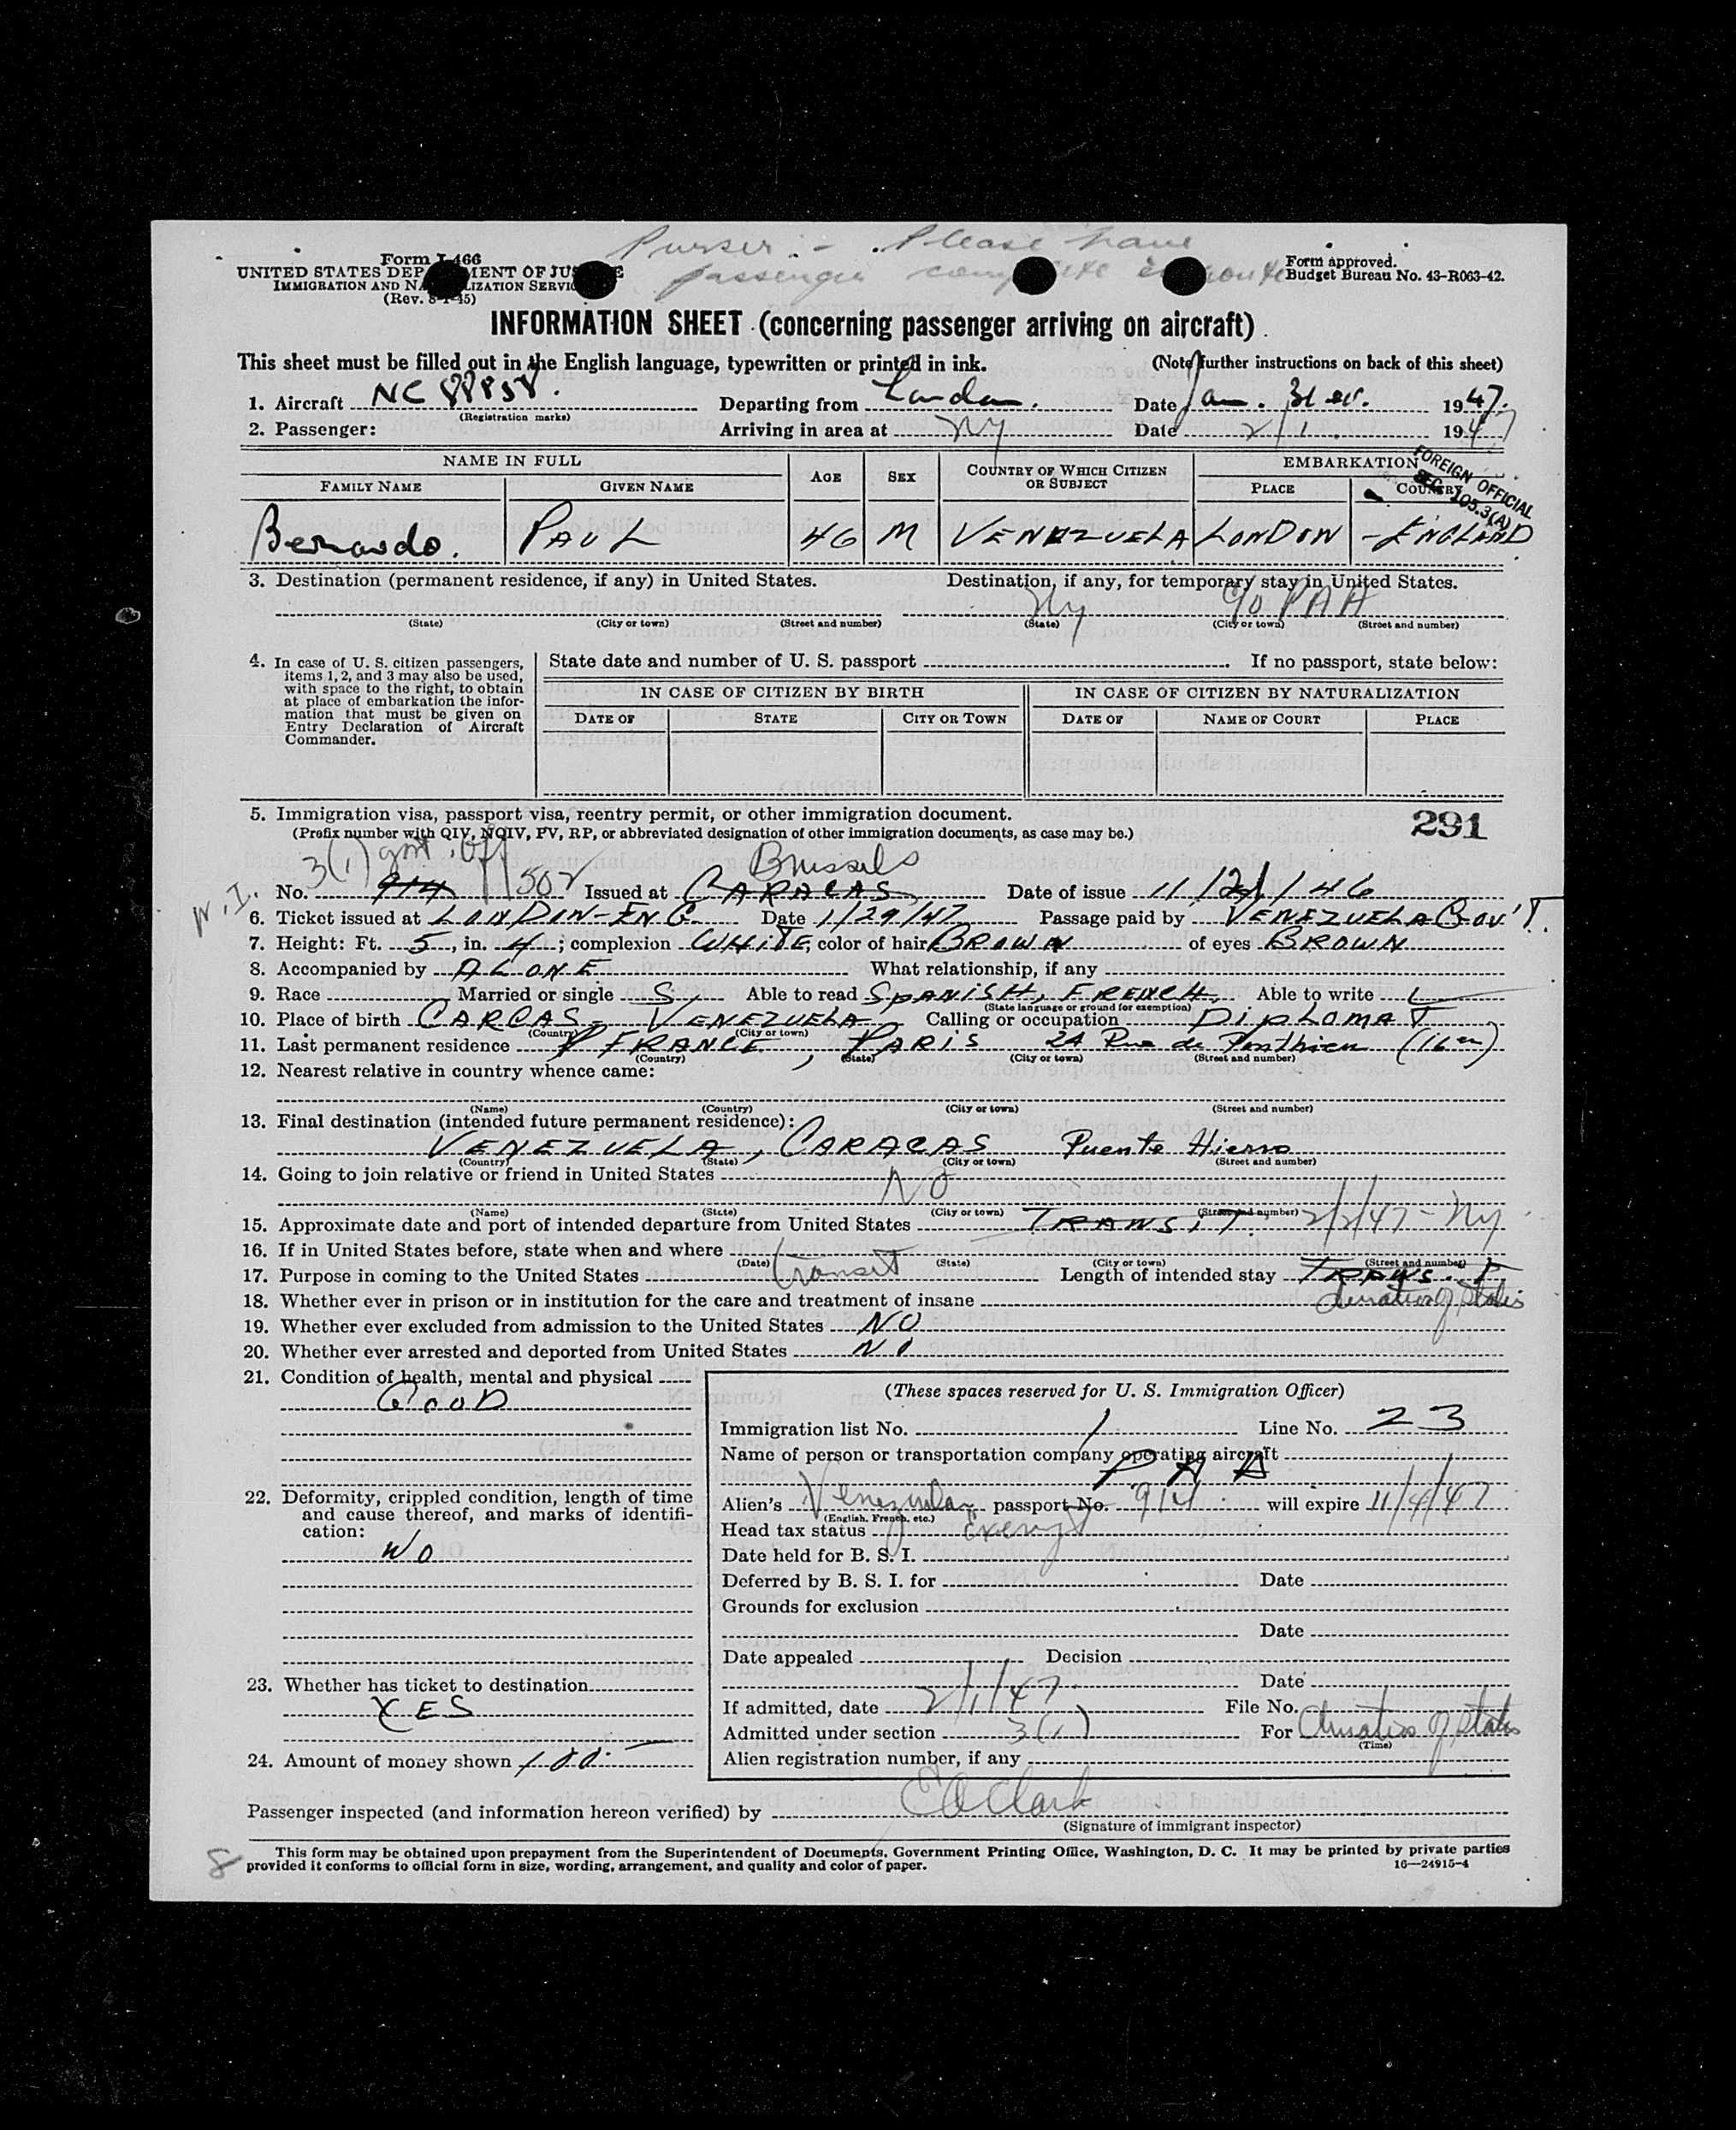 Purser:- Please have
passenger complete enroute
Form I-466
UNITED STATES DEPARTMENT OF JUSTICE
IMMIGRATION AND NATURALIZATION SERVICE
(Rev. 8-1-45)
Form approved.
Budget Bureau No. 43-R063-42.
INFORMATION SHEET (concerning passenger arriving on aircraft)
This sheet must be filled out in the English language, typewritten or printed in ink. (Note further instructions on back of this sheet)
1. Aircraft NC 88858. Departing from London. Date Jan. 31 1947.
(Registration marks)
2. Passenger: Arriving in area at NY Date 2/1 1947
NAME IN FULL AGE SEX COUNTRY OF WHICH CITIZEN OR SUBJECT EMBARKATION
FAMILY NAME GIVEN NAME PLACE COUNTRY
FOREIGN OFFICIAL
SEC. 105.3(A)
Bernardo. PAUL 46 M VENEZUELA LONDON - ENGLAND
3. Destination (permanent residence, if any) in United States. Destination, if any, for temporary stay in United States.
NY c/o PAA
(State) (City or town) (Street and number) (State) (City or town) (Street and number)
4. In case of U. S. citizen passengers, items 1, 2, and 3 may also be used, with space to the right, to obtain at place of embarkation the information that must be given on Entry Declaration of Aircraft Commander.
State date and number of U. S. passport If no passport, state below:
IN CASE OF CITIZEN BY BIRTH IN CASE OF CITIZEN BY NATURALIZATION
DATE OF STATE CITY OR TOWN DATE OF NAME OF COURT PLACE
5. Immigration visa, passport visa, reentry permit, or other immigration document. 291
(Prefix number with QIV, NQIV, PV, RP, or abbreviated designation of other immigration documents, as case may be.)
3(1) gov't. off Brussels
W.I. No. 914 502 Issued at CARACAS Date of issue 11/21/46
6. Ticket issued at LONDON-ENG. Date 1/29/47 Passage paid by VENEZUELA GOV'T.
7. Height: Ft. 5, in. 4; complexion WHITE, color of hair BROWN of eyes BROWN
8. Accompanied by ALONE What relationship, if any
9. Race Married or single S Able to read SPANISH, FRENCH, Able to write
(State language or ground for exemption)
10. Place of birth CARCAS - VENEZUELA Calling or occupation DIPLOMAT
(Country) (City or town)
11. Last permanent residence FRANCE, PARIS 24 Rue de Ponthieu
(Country) (State) (City or town) (Street and number)
12. Nearest relative in country whence came:
(Name) (Country) (City or town) (Street and number)
13. Final destination (intended future permanent residence):
VENEZUELA, CARACAS Puente Hierro
(Country) (State) (City or town) (Street and number)
14. Going to join relative or friend in United States NO
(Name) (State) (City or town) (Street and number)
15. Approximate date and port of intended departure from United States TRANSIT. 2/2/47 - NY
16. If in United States before, state when and where
(Date) (State) (City or town) (Street and number)
17. Purpose in coming to the United States transit Length of intended stay TRANSIT
18. Whether ever in prison or in institution for the care and treatment of insane duration of status
19. Whether ever excluded from admission to the United States NO
20. Whether ever arrested and deported from United States NO
21. Condition of health, mental and physical
GOOD
(These spaces reserved for U. S. Immigration Officer)
Immigration list No. 1 Line No. 23
Name of person or transportation company operating aircraft
PAA
22. Deformity, crippled condition, length of time and cause thereof, and marks of identification:
NO
Alien's Venezuelan passport No. 914 will expire 11/4/47
(English, French, etc.)
Head tax status Exempt
Date held for B. S. I.
Deferred by B. S. I. for Date
Grounds for exclusion
Date
Date appealed Decision
Date
23. Whether has ticket to destination
YES
If admitted, date 2/1/47 File No.
Admitted under section 3(1) For duration of status
(Time)
24. Amount of money shown 100.-
Alien registration number, if any
Passenger inspected (and information hereon verified) by Clark
(Signature of immigrant inspector)
8
This form may be obtained upon prepayment from the Superintendent of Documents, Government Printing Office, Washington, D. C. It may be printed by private parties
provided it conforms to official form in size, wording, arrangement, and quality and color of paper. 16—24915-4